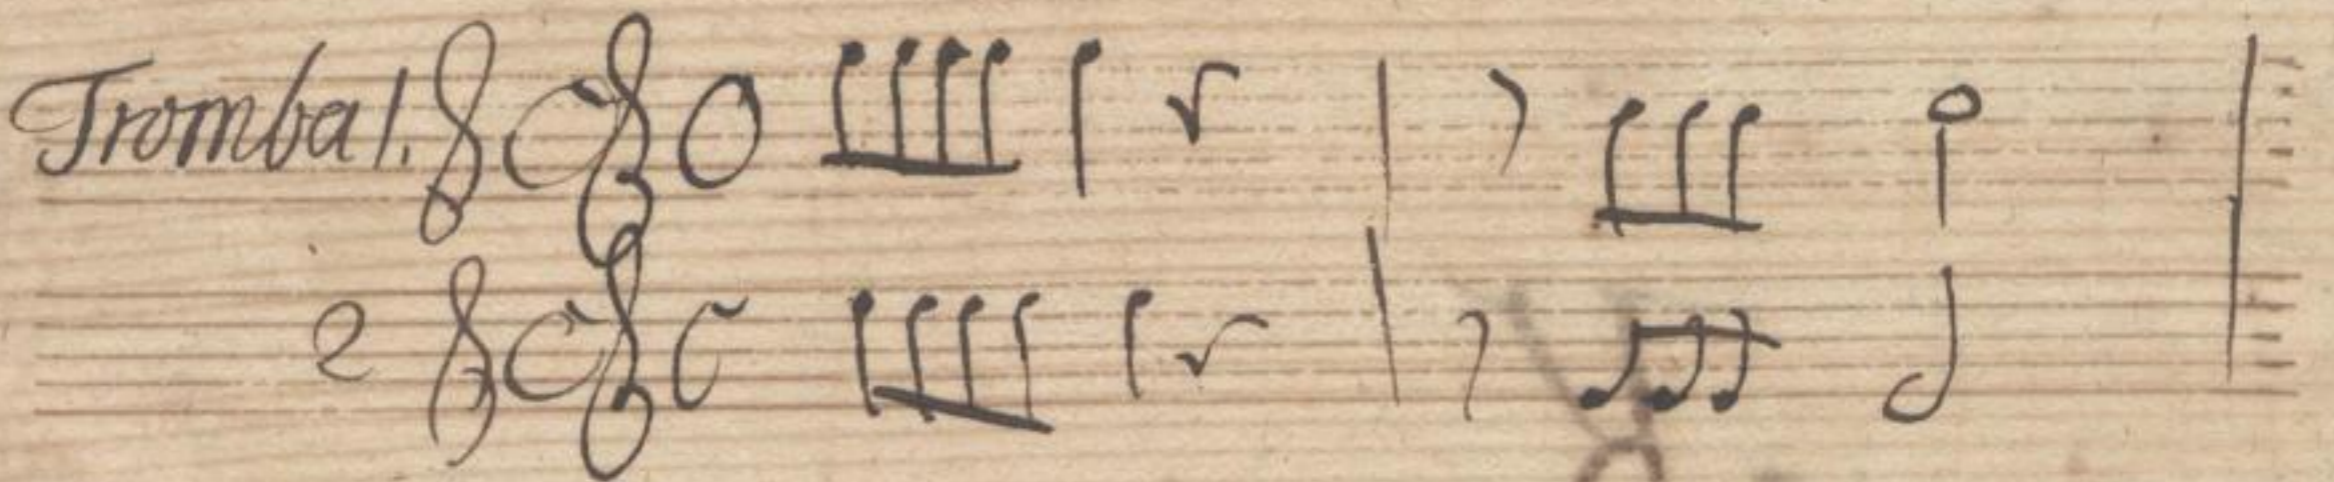 Tromba 1.
2